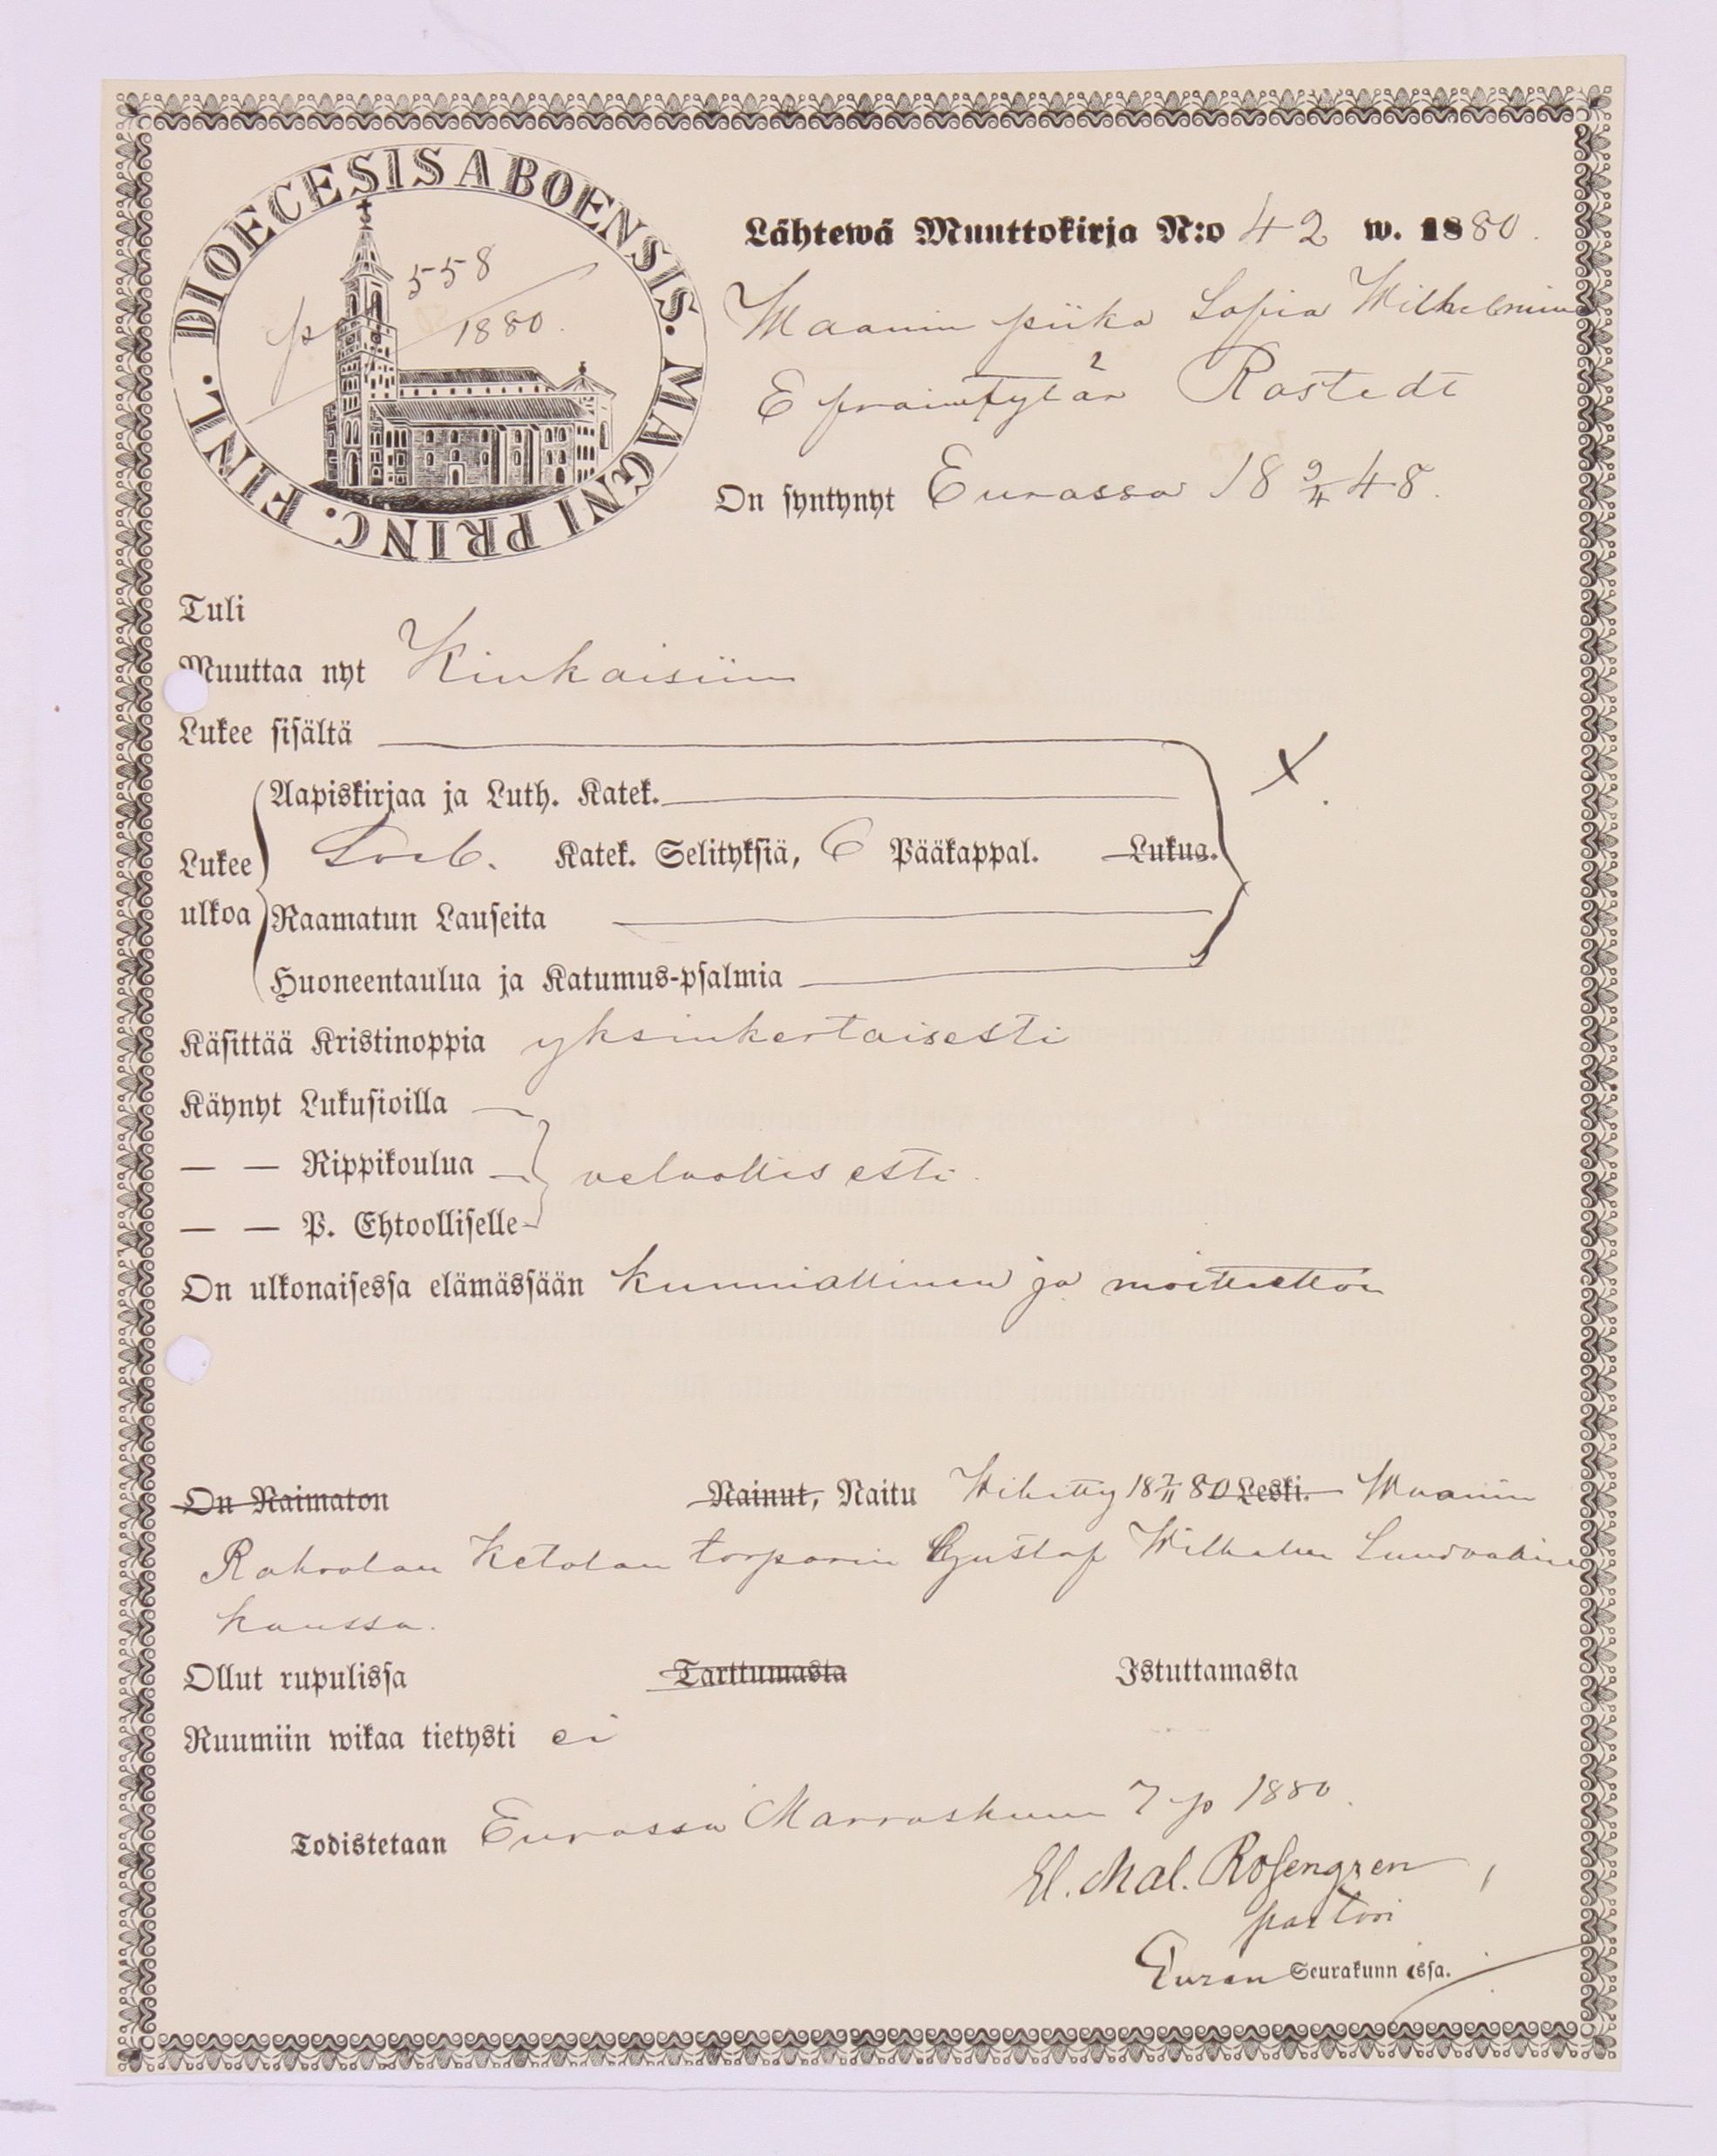 DIOECESIS ABOENSIS. MAGNI PRINC. FINL.
p 558
1880.
Lähtewä Muuttokirja N:o 42 w. 1880.
Maanin piika Sofia Wilhelmina
Efraimtytär Rostedt
On syntynyt Eurassa 18 9/4 48.
Tuli
Muuttaa nyt Kiukaisiin
Lukee sisältä
Aapiskirjaa ja Luth. Katek.
Lukee
ulkoa
Katek. Selityksiä, 6 Pääkappal. Lukua.
Raamatun Lauseita
Huoneentaulua ja Katumus-psalmia
x
Käsittää Kristinoppia yksinkertaisesti
Käynyt Lukusioilla
— — Rippikoulua velvollisesti.
— — P. Ehtoolliselle
On ulkonaisessa elämässään kunniallinen ja moitteetton
On Naimaton Nainut, Naitu Wihitty 18 7/11 80 Leski.
Ketolan torparin Gustaf Wilhelm
kanssa.
Ollut rupulissa Tarttumasta Istuttamasta
Ruumiin wikaa tietysti ei
Todistetaan Eurassa Marraskuun 7 p 1880.
El. Mal. Rosengren
pastori
Euran Seurakunnissa.